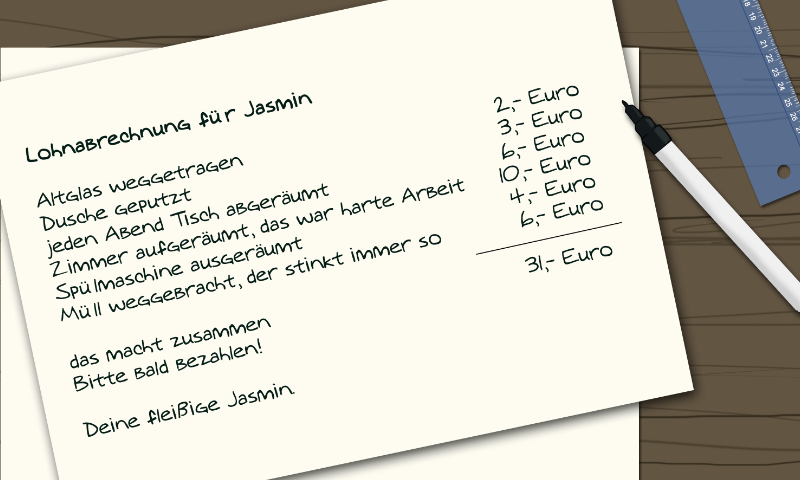 Lohnabrechnung für Jasmin
Altglas weggetragen 2,- Euro
Dusche geputzt 3,- Euro
jeden Abend Tisch abgeräumt 6,- Euro
Zimmer aufgeräumt, das war harte Arbeit 10,- Euro
Spülmaschine ausgeräumt 4,- Euro
Müll weggebracht, der stinkt immer so 6,- Euro
das macht zusammen 31,- Euro
Bitte bald bezahlen!
Deine fleißige Jasmin
18 19 20 21 22 23 24 25 26